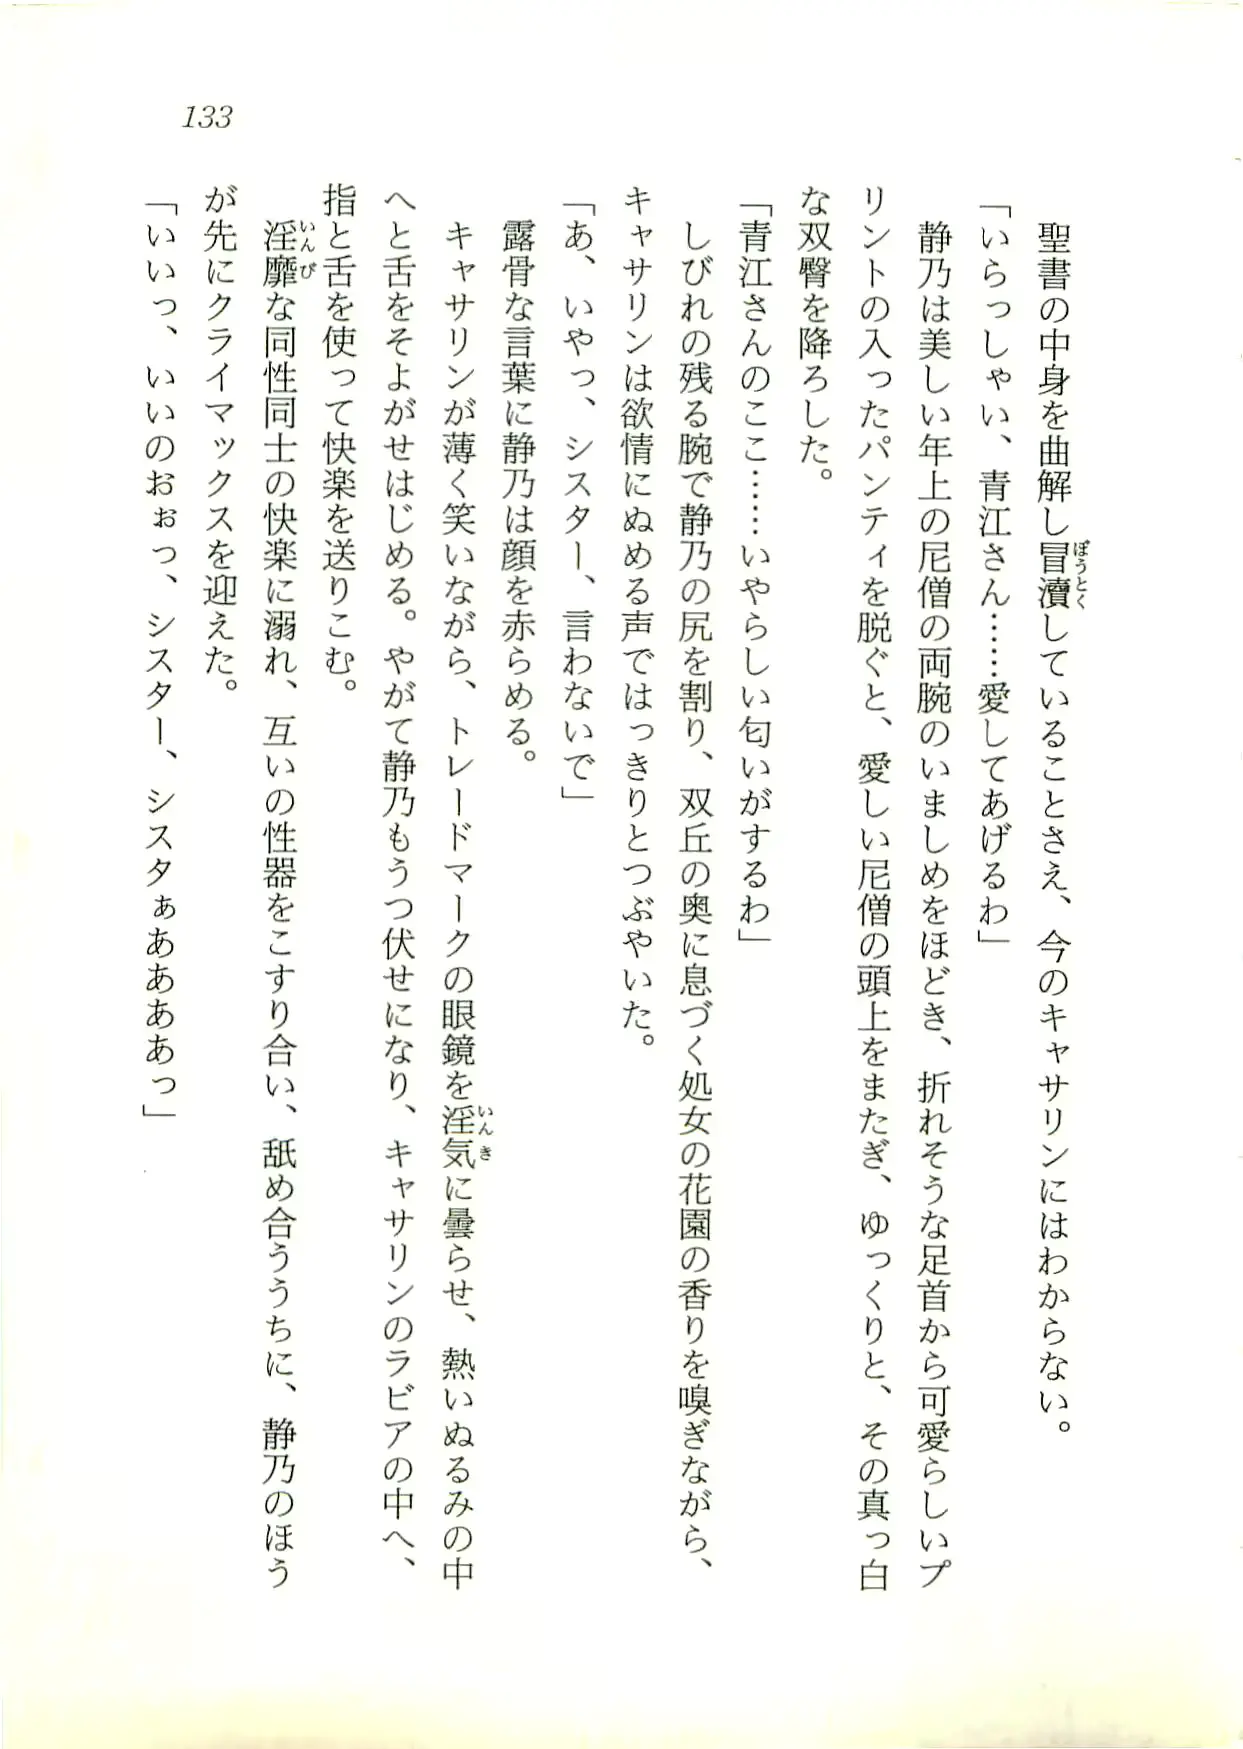 133
聖書の中身を曲解し冒瀆していることさえ、今のキャサリンにはわからない。
「いらっしゃい、青江さん……愛してあげるわ」
静乃は美しい年上の尼僧の両腕のいましめをほどき、折れそうな足首から可愛らしいプ
リントの入ったパンティを脱ぐと、愛しい尼僧の頭上をまたぎ、ゆっくりと、その真っ白
な双臀を降ろした。
「青江さんのここ……いやらしい匂いがするわ」
しびれの残る腕で静乃の尻を割り、双丘の奥に息づく処女の花園の香りを嗅ぎながら、
キャサリンは欲情にぬめる声ではっきりとつぶやいた。
「あ、いやっ、シスター、言わないで」
露骨な言葉に静乃は顔を赤らめる。
キャサリンが薄く笑いながら、トレードマークの眼鏡を淫気に曇らせ、熱いぬるみの中
へと舌をそよがせはじめる。やがて静乃もうつ伏せになり、キャサリンのラビアの中へ、
指と舌を使って快楽を送りこむ。
淫靡な同性同士の快楽に溺れ、互いの性器をこすり合い、舐め合ううちに、静乃のほう
が先にクライマックスを迎えた。
「いいっ、いいのおぉっ、シスター、シスタぁああああっ」